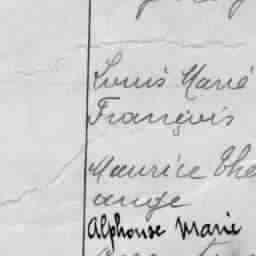 Louis Marié
François
Maurice
ange
Alphonse Marie